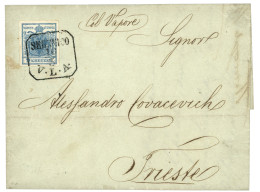 Col Vapore
Signor
SEBENICO
V. L. A.
Alessandro Covacevich
Trieste